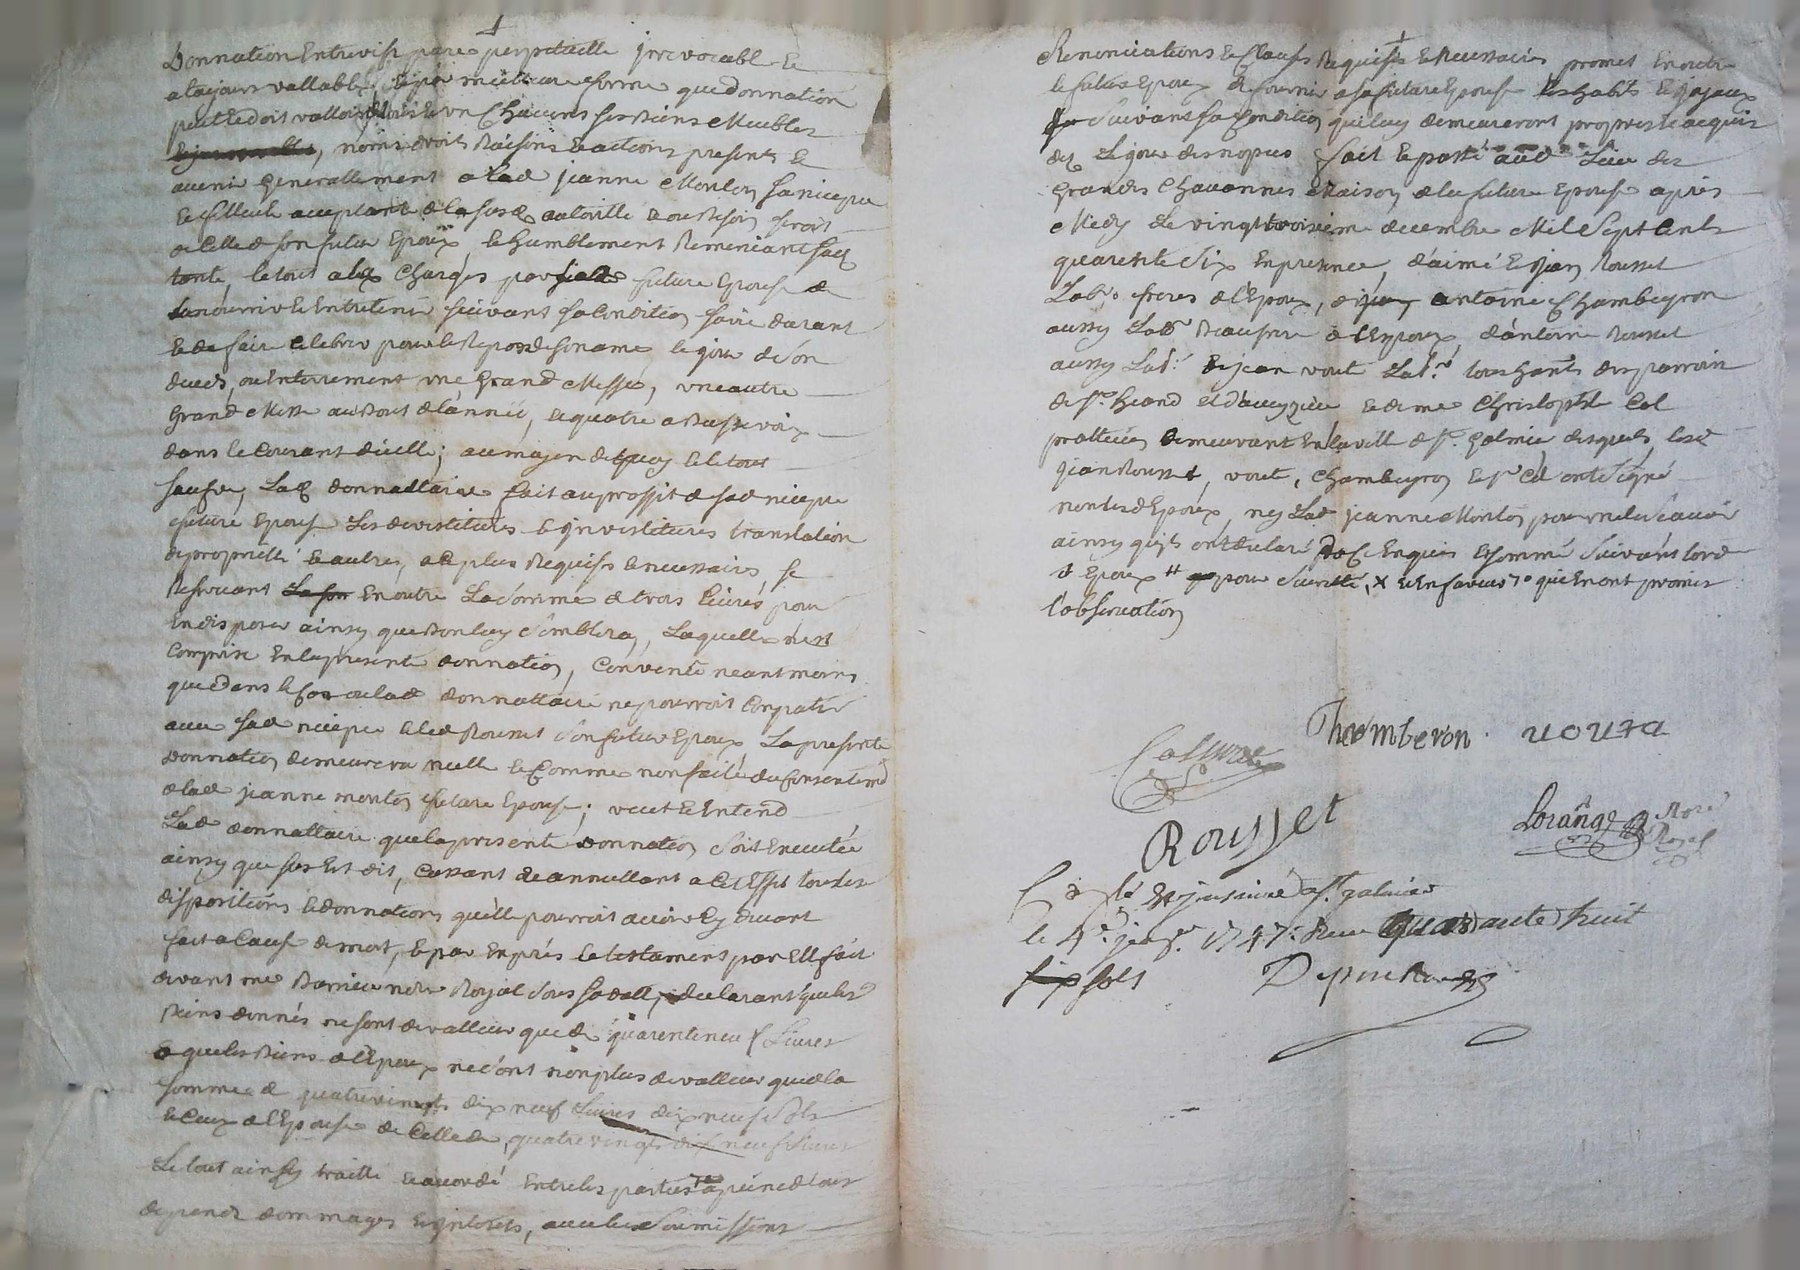 Donnation Entrevifs pure perpetuelle irrevocable Et
a tajours vallable, Et par meilleure forme que donnation
peut Et doit valloir de tous Et un Chacuns ses Biens Meubles
noms droits Raisons Et actions presents Et
avenir Generallement a lad jeanne Monton sa niepce
Et filleule acceptante de la susd autorité
de Celle de son futur Epoux Et humblement Remerciant sad
tante, le tout aux Charges par sad future Epouse de
la nourrir Et Entretenir suivant sa Condition sa vie durant
Et de faire Celebrer pour le Repos de son ame le jour de son
deces, ou Enterrement une Grand Messe, une autre
Grand Messe au Bout de l'année, Et quatre a Basse voix
dans le Courant d'icelle; au moyen de quoy Et le tout
sauf, Lad donnattaire fait au proffit de sad niepce
future Epouse Les devestitures Et investitures translation
de proprietté Et autres, a Ce plus Requises Et necessaires, se
Reservant Enoutre La somme de trois Livres pour
En disposer ainsy que Bon luy semblera, Laquelle n'est
Comprise En la presente donnation, Convenu neantmoins
que dans le Cas ou lad donnattaire ne pourroit Compatir
avec sad niepce Et led Rousset son futur Epoux La presente
donnation demeurera nulle Et Comme non faite du Consentement
de lad jeanne monton future Epouse; veut Et Entend
Lad donnattaire que la presente donnation soit Executée
ainsy que sus Est dit, Cassant Et annullant a Cet Effet toutes
dispositions Et donnations qu'elle pourroit avoir Cy devant
fait a Cause de mort, Et par Exprés le testament par Elle fait
devant me notre Royal sous sa datte, declarant que les
Biens donnés ne sont de valleur que de quarente neuf Livres
Et que les Biens de l'Epoux ne sont non plus de valleur que de la
somme de quatrevingts dix neuf Livres dix neuf sols
Et Ceux de l'Epouse de Celle de quatre vingts dix neuf Livres
Le tout ainsy traitté Et accordé Entre les parties a peine de tous
depends dommages Et interets, avec les soumissions
Renonciations Et Clauses Requises Et necessaires promet Enoutre
le futur Epoux de fournir a sa future Epouse les habits Et joyaux
suivant sa Condition qui luy demeureront propres Et acquis
dez Le jour des nopces fait Et passé aud Lieu des
Grandes Chavannes Maison de la future Epouse apres
Midy Le vingt troisieme decembre Mil Sept Cents
quarente six En presence, d'aimé Et jean Rousset
Labr. freres de l'Epoux, antoine Chambeyron
aussy Labr Beaufrere de l'Epoux, d'antoine Rousset
aussy Labr. Et jean vout Labr. tous habts des parroisses
de St. heand Et d'aveyzieu Et de me Christophle Cal
praticien demeurant En la ville de St. Galmier desquels, lesd
jean Rousset, vout, Chambeyron Et sr Cal ont signé
non led Epoux, ny Lad jeanne Monton pour ne le sçavoir
ainsy qu'ils ont declaré de Ce Enquis Et sommé suivant l'ord
Epoux pour seureté, x Et En faveur qui En ont promis
l'observation
Chamberon. vouta
Rousset
Lorange No.re Royal
C. lé Et jnsinué a St. galmier
le 4e. janvr. 1747. Receu quarante huit
sols